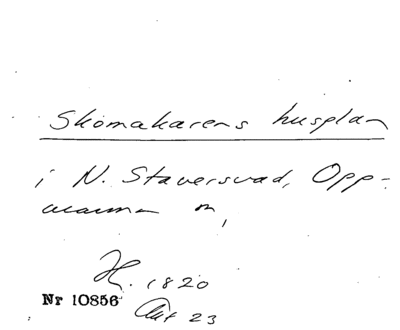 Skomakarens husplan
i N. Staversvad, Opp-
manna sn,
H. 1820
Nr 10856
Akt 23